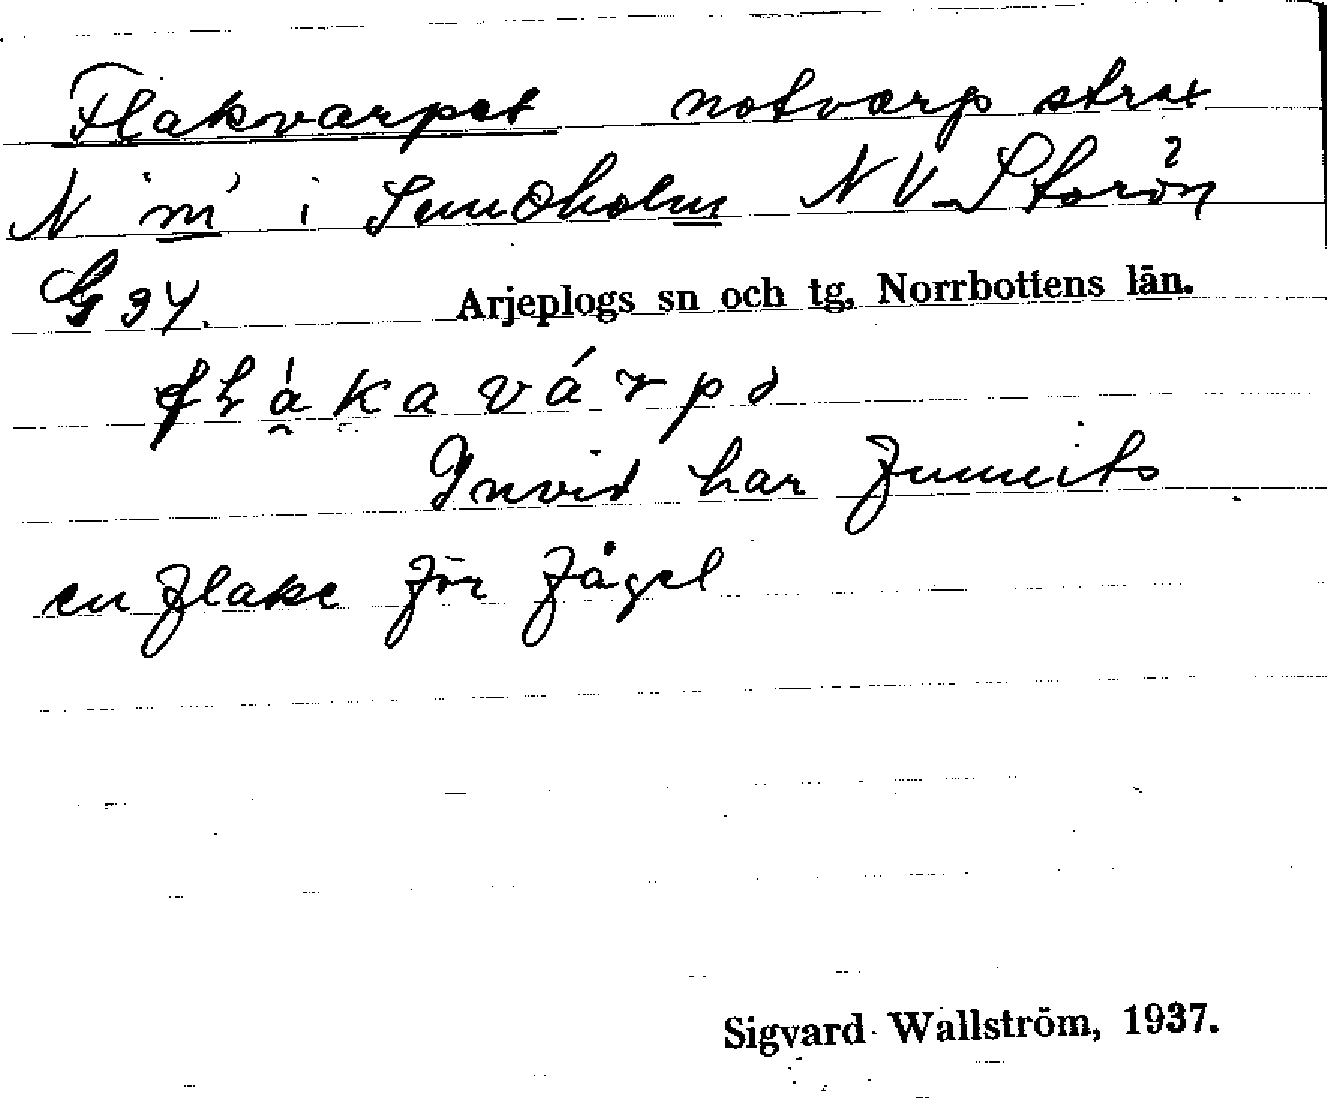 Flakvarpet notvarp strax
N "m" i Sundholm NV Storön
G 34. Arjeplogs sn och tg, Norrbottens län.
Invid har funnits
en flake för fågel
Sigvard Wallström, 1937.